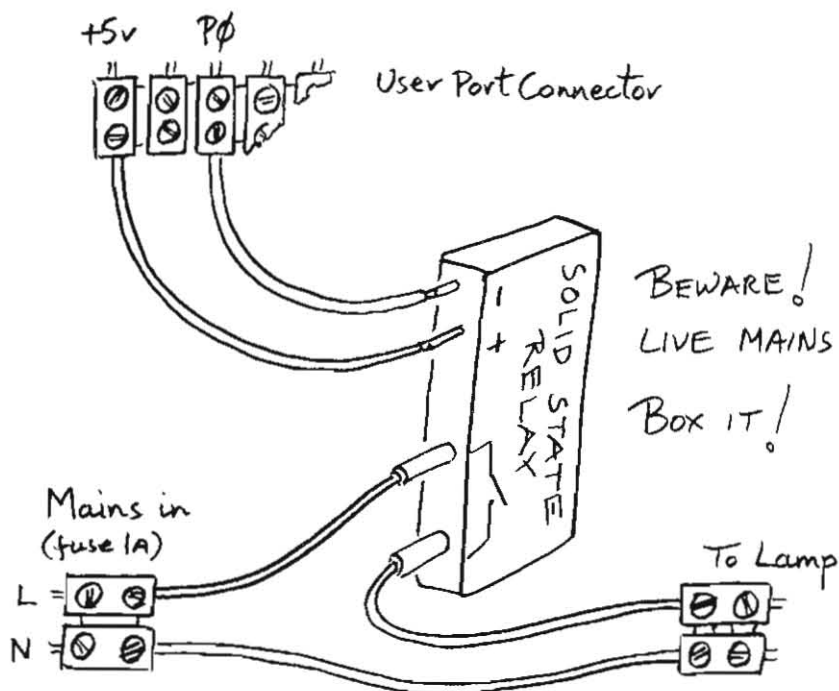 +5v PØ
User Port Connector
-
+
SOLID STATE
RELAY
BEWARE!
LIVE MAINS
BOX IT!
Mains in
(fuse 1A)
L
N
To Lamp